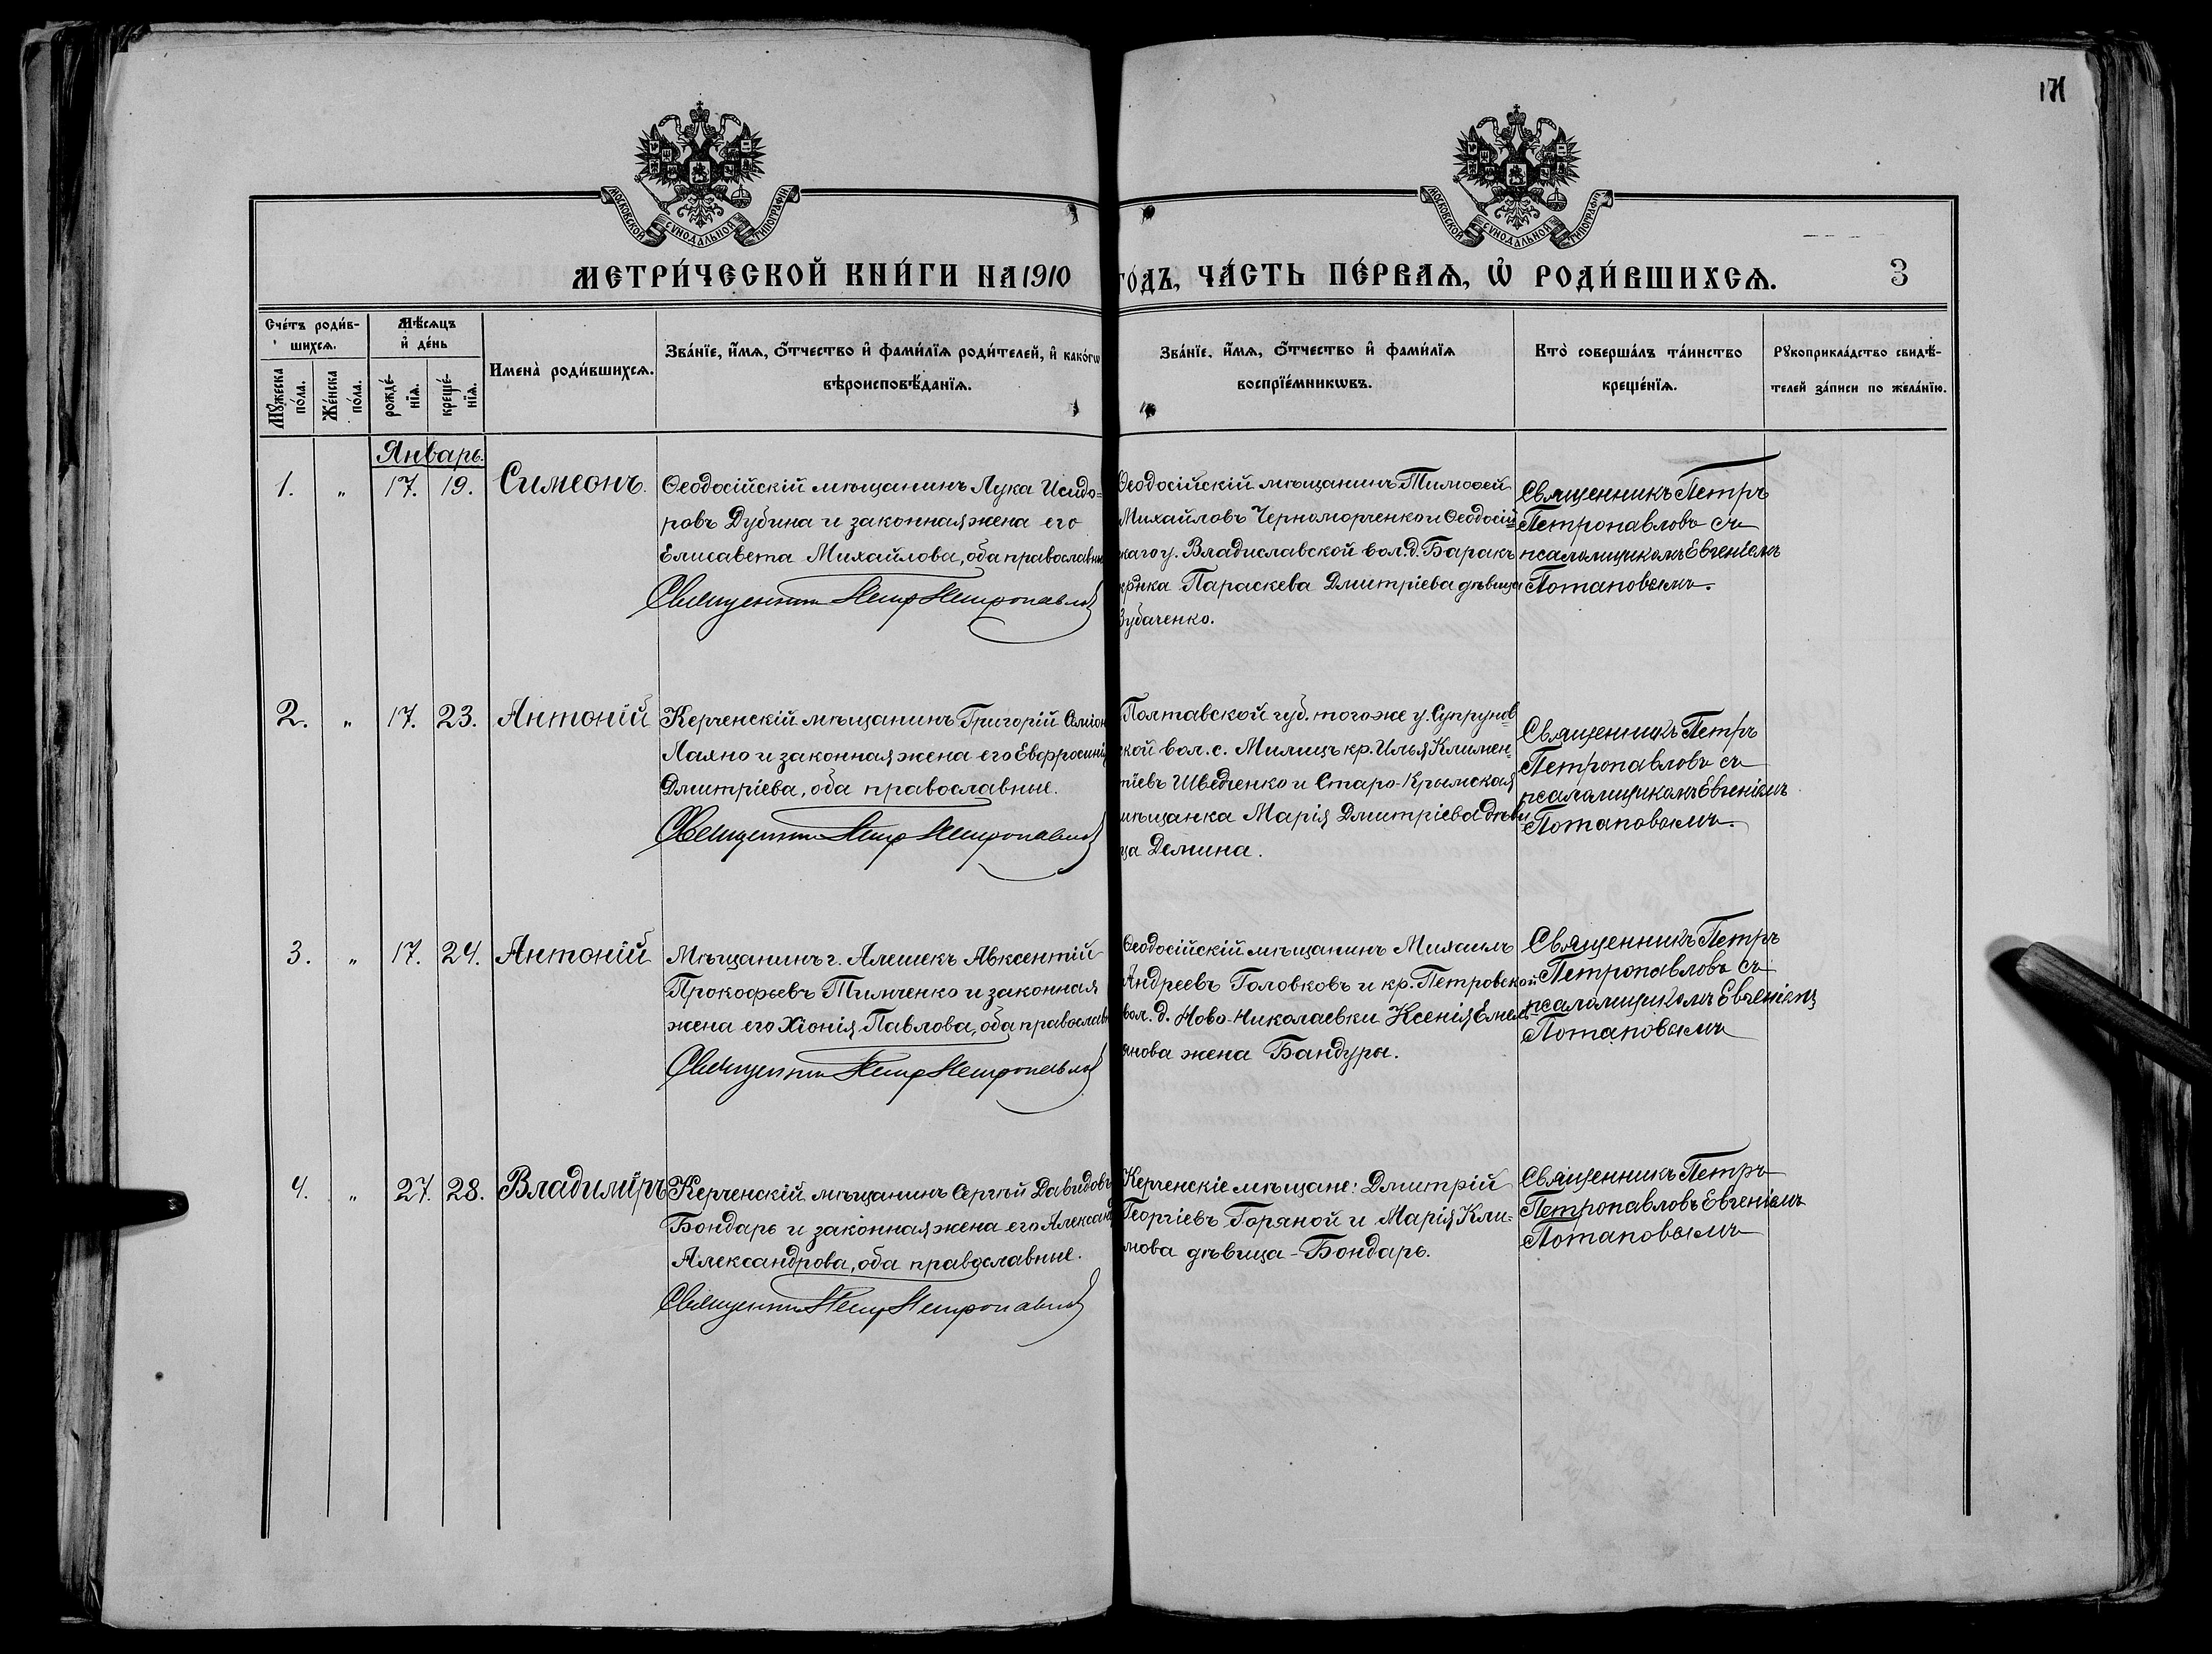 171
МОСКОВСКОЙ СѴНОДАЛЬНОЙ ТИПОГРАФІИ
МОСКОВСКОЙ СѴНОДАЛЬНОЙ ТИПОГРАФІИ
МЕТРИ́ЧЕСКОЙ КНИ́ГИ НА 1910 ГО́ДЪ, ЧА́СТЬ ПЕ́РВАѦ, Ѡ҆ РОДИ́ВШИХСѦ.
3
Сче́тъ роди́в-
шихсѧ.
Мꙋ́жеска по́ла.
Же́нска по́ла.
Мѣ́сѧцъ
и҆ де́нь
рожде́-
нїѧ.
креще́-
нїѧ.
Имена̀ роди́вшихсѧ.
Зва́нїе, и҆́мѧ, ѻ҆́тчество и҆ фами́лїѧ роди́телей, и҆ како́гѡ
вѣроисповѣ́данїѧ.
Зва́нїе, и҆́мѧ, ѻ҆́тчество и҆ фами́лїѧ
воспрїе́мникѡвъ.
Кто̀ соверша́лъ та́инство
креще́нїѧ.
Рꙋкоприкла́дство свидѣ́-
телей за́писи по жела́нїю.
Январь.
1. " 17. 19. Симеонъ.
Ѳеодосійскій мѣщанинъ Лука Исидо=
ровъ Дубина и законная жена его
Елисавета Михайлова, оба православн
Священникъ Петръ Петропавловъ
Ѳеодосійскій мѣщанинъ Тимоѳей
Михайловъ Черноморченко и Ѳеодосій=
скаго у. Владиславской вол. д. Баракъ
кр‑нка Параскева Дмитріева дѣвица
Зубаченко.
Священникъ Петръ
Петропавловъ съ
псаломщикомъ Евгеніемъ
Потаповымъ.
2. " 17. 23. Антоній
Керченскій мѣщанинъ Григорій Симіон
Лаяно и законная жена его Евфросинія
Дмитріева, оба православные.
Священникъ Петръ Петропавловъ
Полтавской губ. того же у. Супрунов=
ской вол. с. Милицъ кр. Илья Климен=
тіевъ Шведченко и Старо-Крымская
мѣщанка Марія Дмитріева дѣви
ца Демина.
Священникъ Петръ
Петропавловъ съ
псаломщикомъ Евгеніемъ
Потаповымъ.
3. " 17. 24. Антоній
Мѣщанинъ г. Алешекъ Авксентій
Прокофьевъ Тимченко и законная
жена его Хіонія Павлова, оба православн
Священникъ Петръ Петропавловъ
Ѳеодосійскій мѣщанинъ Михаилъ
Андреевъ Головковъ и кр. Петровской
вол. д. Ново-Николаевки Ксенія Емель
янова жена Бандуры.
Священникъ Петръ
Петропавловъ съ
псаломщикомъ Евгеніемъ
Потаповымъ
4. " 27. 28. Владиміръ
Керченскій мѣщанинъ Сергѣй Давидовъ
Бондарь и законная жена его Александ
Александрова, оба православные.
Священникъ Петръ Петропавловъ
Керченскіе мѣщане: Дмитрій
Георгіевъ Горяной и Марія Кли=
мова дѣвица - Бондарь.
Священникъ Петръ
Петропавловъ Евгеніемъ
Потаповымъ